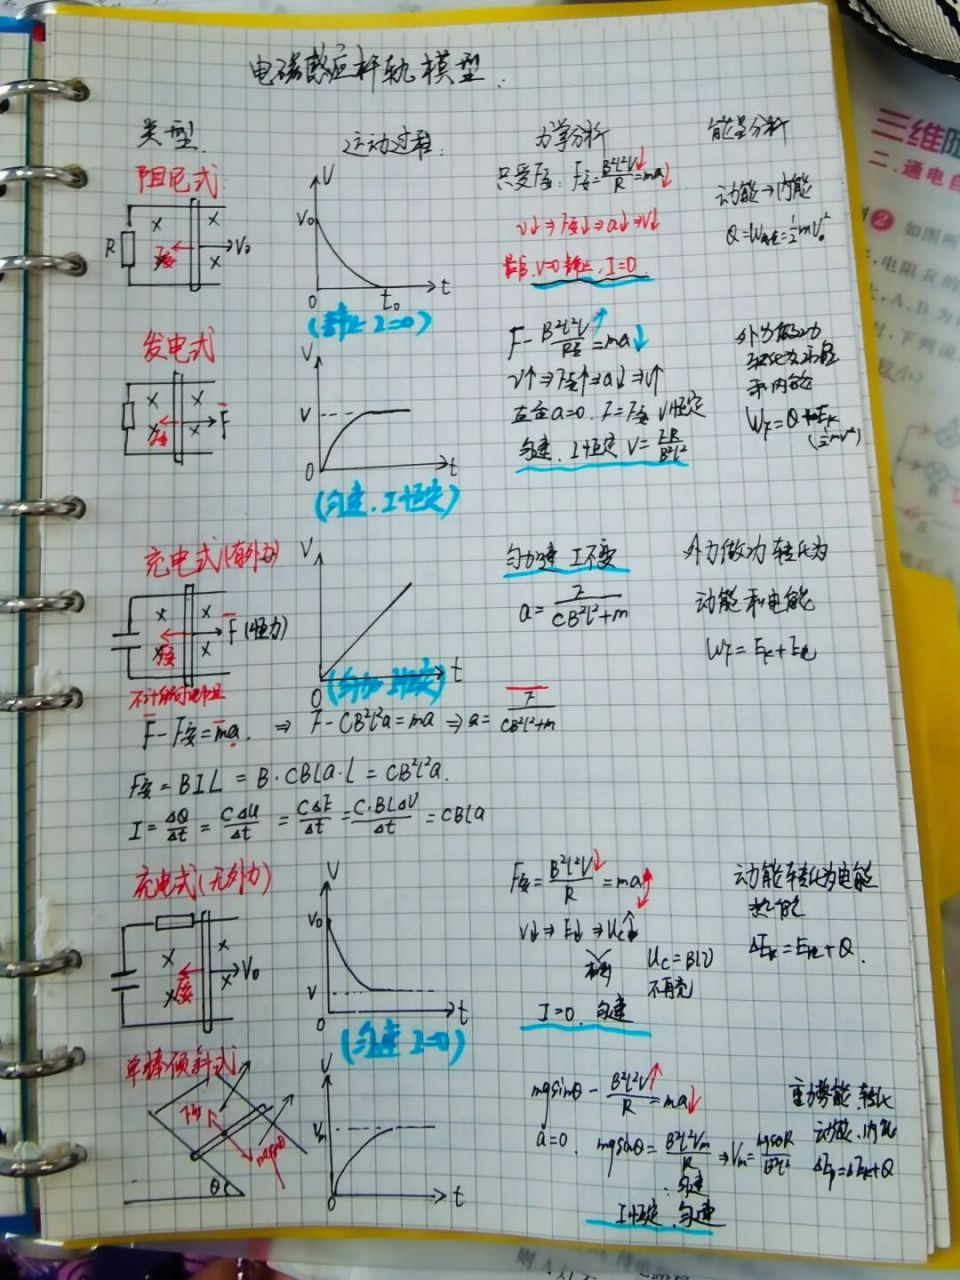 电磁感应杆轨模型.
类型. 运动过程: 力学分析 能量分析
阻尼式:
R
F安
V₀
V
V₀
0 t₀ t
(静止 I=0)
只受F安: F安=B²l²V↓/R=ma↓
V↓⇒F安↓⇒a↓⇒V↓
最后.V=0静止,I=0.
动能→内能
Q=W克安=½mV₀²
发电式
F安
F
V
V
0 t
(匀速.I恒定)
F-B²l²V↑/R总=ma↓
V↑⇒F安↑⇒a↓⇒V↑
直至a=0. F=F安 V恒定
匀速.I恒定.V=FR/B²l²
外力做功
转化为动能
和内能
W_F=Q+E_K
(½mV²)
充电式(有外力)
F安
F(恒力)
不计电阻
V
0 t
匀加速 I不变
a=F/CB²l²+m
外力做功转化为
动能和电能
W_F=E_K+E电
F-F安=ma. ⇒ F-CB²l²a=ma ⇒ a=F/CB²l²+m
F安=BIL=B·CBla·l=CB²l²a.
I=ΔQ/Δt=CΔU/Δt=CΔE/Δt=C·BlΔV/Δt=CBla
充电式(无外力)
F安
V₀
V
V₀
V
0 t
(匀速 I=0)
F安=B²l²V↓/R=ma
V↓⇒E↓⇒Uc↑
Uc=Blv
不再充
I=0.匀速
动能转化为电能
热能
ΔE_K=E电+Q.
单棒倾斜式
F安
mgsinθ
θ
V
Vm
0 t
mgsinθ-B²l²V↑/R=ma↓
a=0. mgsinθ=B²l²Vm/R⇒Vm=mgsinθR/B²l²
匀速
I恒定.匀速
重力势能.转化
动能.内能
ΔEp=ΔE_K+Q
三维
二、通电自
2 如图所
,电阻R的
,A、B为
下列说